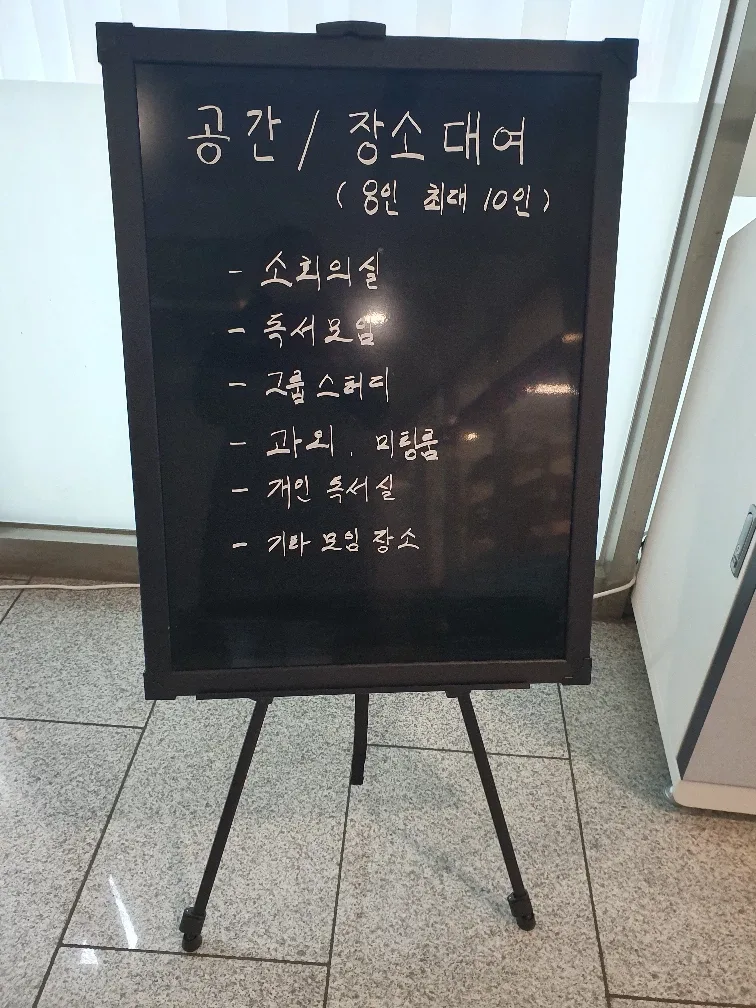 공간 / 장소 대여
( 8인 최대 10인 )
- 소회의실
- 독서모임
- 그룹 스터디
- 과외, 미팅룸
- 개인 독서실
- 기타 모임 장소